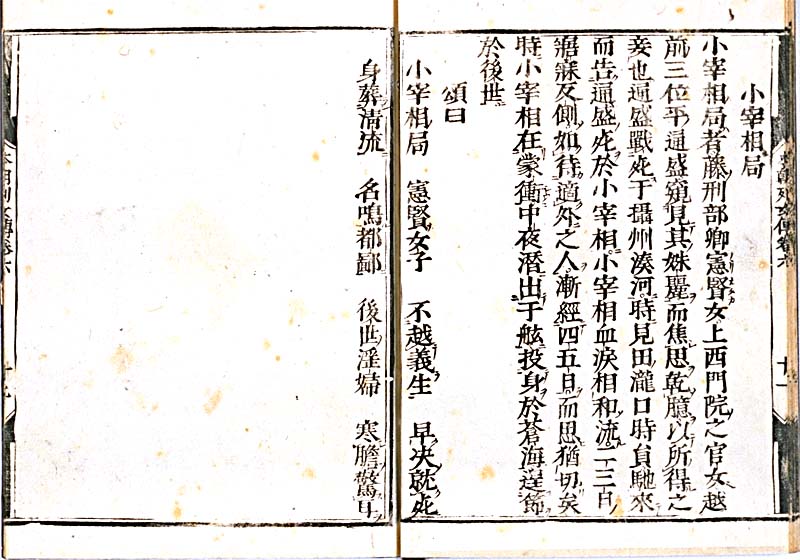 小宰相局
小宰相局者藤刑部卿憲賢女上西門院之官女越
前三位平通盛窺見其姝麗而焦思乾臆以所得之
妾也通盛戰死于攝州湊河時見田瀧口時貟馳來
而告通盛死於小宰相小宰相血淚相和流一二三百
寤寐反側如待適外之人漸經四五日而思猶切矣
時小宰相在蒙衝中夜潛出于舷投身於蒼海逞節
於後世
頌曰
小宰相局 憲賢女子 不越義生 早決就死
身葬淸流 名鳴都鄙 後世淫婦 寒膽驚耳